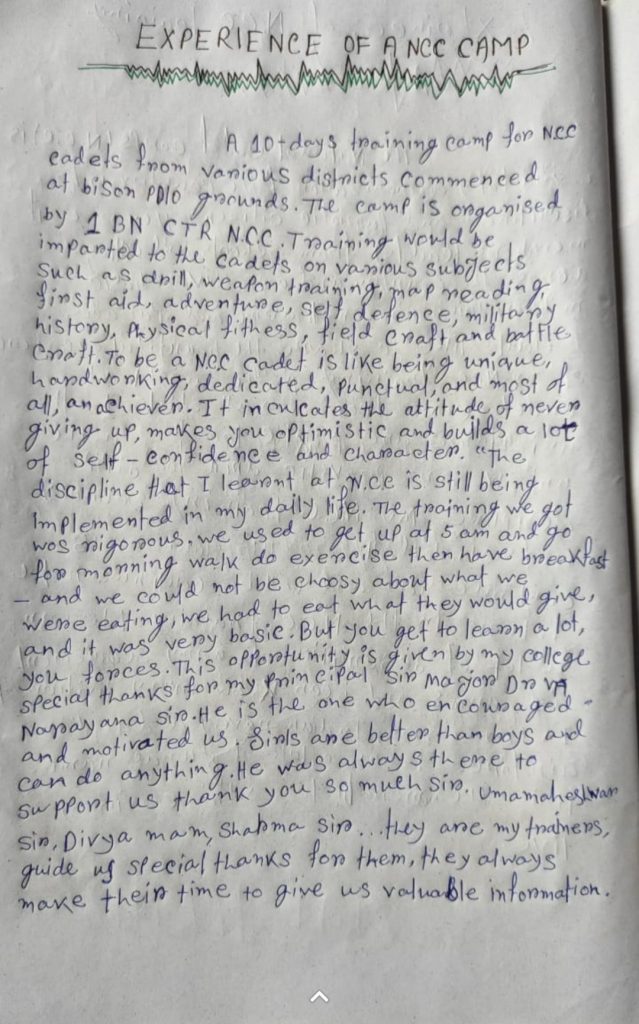 EXPERIENCE OF A NCC CAMP
A 10-days training camp for NCC
cadets from various districts commenced
at bison POLO grounds. The camp is organised
by 1 BN CTR N.C.C. Training would be
imparted to the cadets on various subjects
Such as drill, weapon training, map reading,
first aid, adventure, self defence, military
history, Physical fithess, field craft and battle
Craft. To be a NCC cadet is like being unique,
handworking, dedicated, Punctual, and most of
all, an achiever. It inculcates the attitude of never
giving up, makes you optimistic and builds a lot
of self-confidence and character. "The
discipline that I learnt at N.CC is still being
Implemented in my daily life. The training we got
was rigorous. we used to get up at 5 am and go
for morning walk do exercise then have breakfast
- and we could not be choosy about what we
were eating, we had to eat what they would give,
and it was very basic. But you get to learn a lot,
you forces. This opportunity is given by my college
special thanks for my principal Sir major Dr VA
Narayana sir. He is the one who encouraged -
and motivated us. Girls are better than boys and
can do anything. He was always there to
support us thank you so much Sir. Umamaheshwar
sir, Divya mam, Sharma Sir... they are my trainers,
guide us special thanks for them, they always
make their time to give us valuable information.